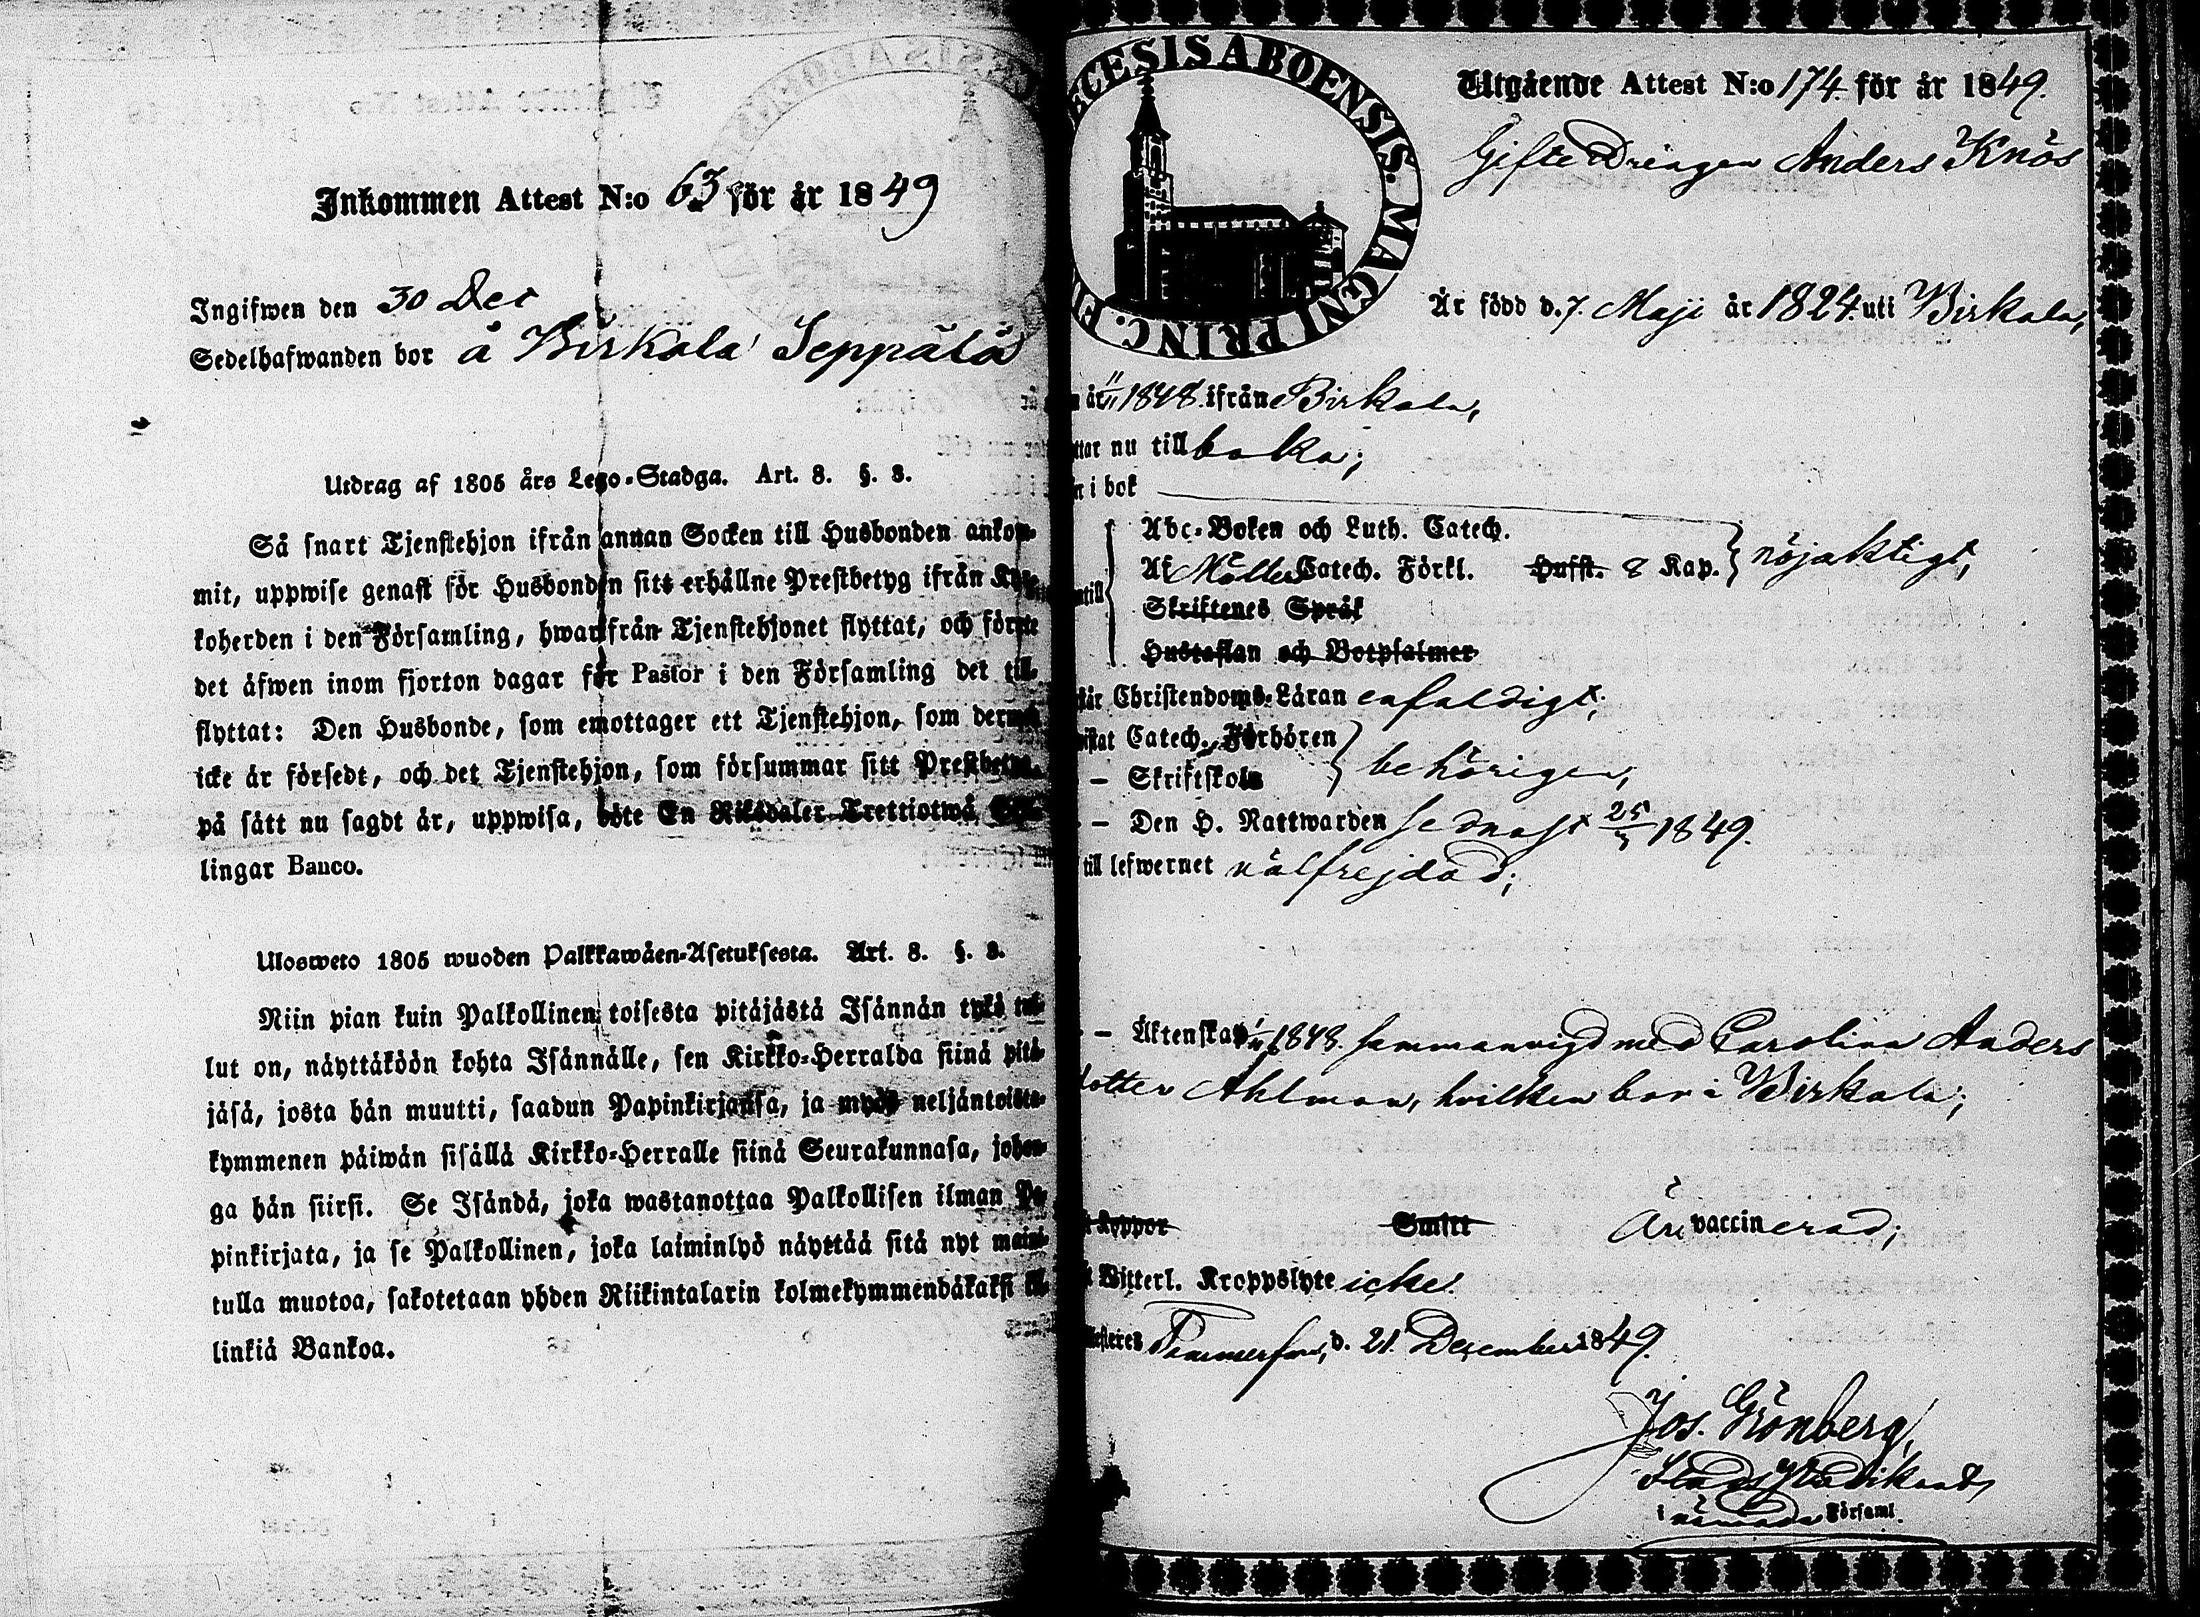 Inkommen Attest N:o 63 för år 1849
Ingifwen den 30 Dec
Sedelhafwanden bor å Birkala Seppälä
Utdrag af 1805 års Lego-Stadga. Art. 8. §. 8.
Så snart Tjenstehjon ifrån annan Socken till Husbonden ankom-
mit, uppwise genast för Husbonden sitt erhållne Prestbetyg ifrån Kyr-
koherden i den Församling, hwarifrån Tjenstehjonet flyttat, och förete
det äfwen inom fjorton dagar för Pastor i den Församling det till-
flyttat: Den Husbonde, som emottager ett Tjenstehjon, som dermed
icke är försedt, och det Tjenstehjon, som försummar sitt Prestbetyg,
på sätt nu sagdt är, uppwisa, böte En Riksdaler Trettiotwå Schil-
lingar Banco.
Ulosweto 1805 wuoden Palkkawäen-Asetuksesta. Art. 8. §. 8.
Niin pian kuin Palkollinen toisesta pitäjästä Isännän tykö tul-
lut on, näyttäköön kohta Isännälle, sen Kirkko-Herralda siinä pitä-
jäsä, josta hän muutti, saadun Papinkirjansa, ja myös neljäntoista-
kymmenen päiwän sisällä Kirkko-Herralle siinä Seurakunnasa, johon-
ga hän siirsi. Se Isändä, joka wastanottaa Palkollisen ilman Pa-
pinkirjata, ja se Palkollinen, joka laiminlyö näyttää sitä nyt maini-
tulla muotoa, sakotetaan yhden Riikintalarin kolmekymmendäkaksi kil-
linkiä Bankoa.
CESIS ABOENSIS. MAGNI PRINC. FI
Utgående Attest N:o 174. för år 1849.
Gifte Drängen Anders Knös
Är född d. 7. Maji år 1824. uti Birkala,
år 1848. ifrån Birkala,
ttar nu till baka;
n i bok
Abc-Boken och Luth. Catech.
Af Möllers Catech. Förkl. Hufst. 8 Kap. nöjaktigt,
ntill
Skriftenes Språk
Hustaflan och Botpsalmer
tår Christendoms-Läran enfaldigt;
istat Catech. Förhören
– Skriftskola behörigen,
– Den H. Nattwarden sednast 25/3 1849.
till lefwernet välfrejdad;
– Äktenskap 1848. sammanvigd med Carolina Anders
dotter Ahlman, hvilken bor i Birkala;
koppor Smitt Är vaccinerad;
Witterl. Kroppslyte icke.
testeres Tammerfors, d. 21. December 1849.
Jos. Grönberg,
Stads Prädikant
i nämnda Församl.